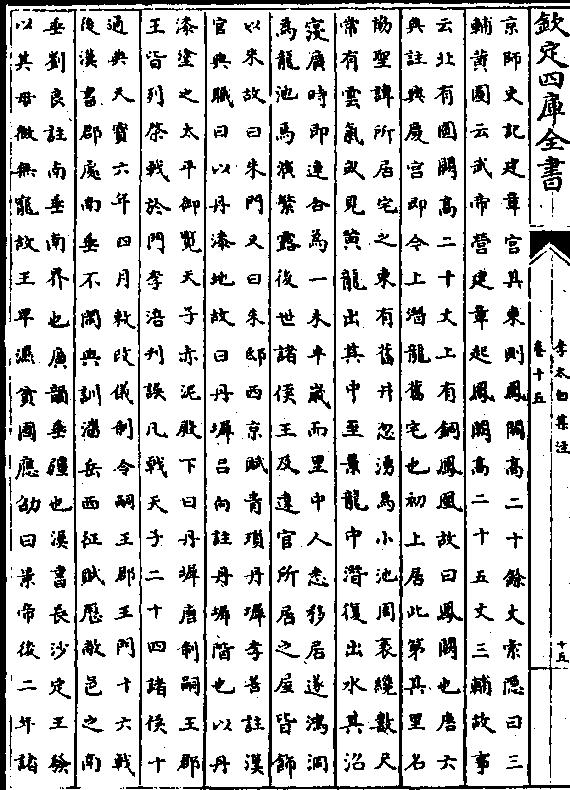 欽定四庫全書
李太白集注
卷十五
十五
京師史記建章宮其東則鳳闕高二十餘丈索隱曰三
輔黃圖云武帝營建章起鳳闕高二十五丈三輔故事
云北有圜闕高二十丈上有銅鳳凰故曰鳳闕也唐六
典註興慶宮即今上潛龍舊宅也初上居此第其里名
協聖諱所居宅之東有舊井忽湧為小池周袤纔數尺
常有雲氣或見黃龍出其中至景龍中潛復出水其沼
寖廣時即連合為一未半歲而里中人悉移居遂鴻洞
為龍池焉演繁露後世諸侯王及達官所居之屋皆飾
以朱故曰朱門又曰朱邸西京賦青瑣丹墀李善註漢
官典職曰以丹漆地故曰丹墀呂向註丹墀階也以丹
漆塗之太平御覽天子赤泥殿下曰丹墀唐制嗣王郡
王皆列棨戟於門李涪刊誤凡戟天子二十四諸侯十
通典天寶六年四月敕改儀制令嗣王郡王門十六戟
後漢書郡處南垂不閑典訓潘岳西征賦歷敝邑之南
垂劉良註南垂南界也廣韻垂疆也漢書長沙定王發
以其母微無寵故王卑濕貧國應劭曰景帝後二年諸